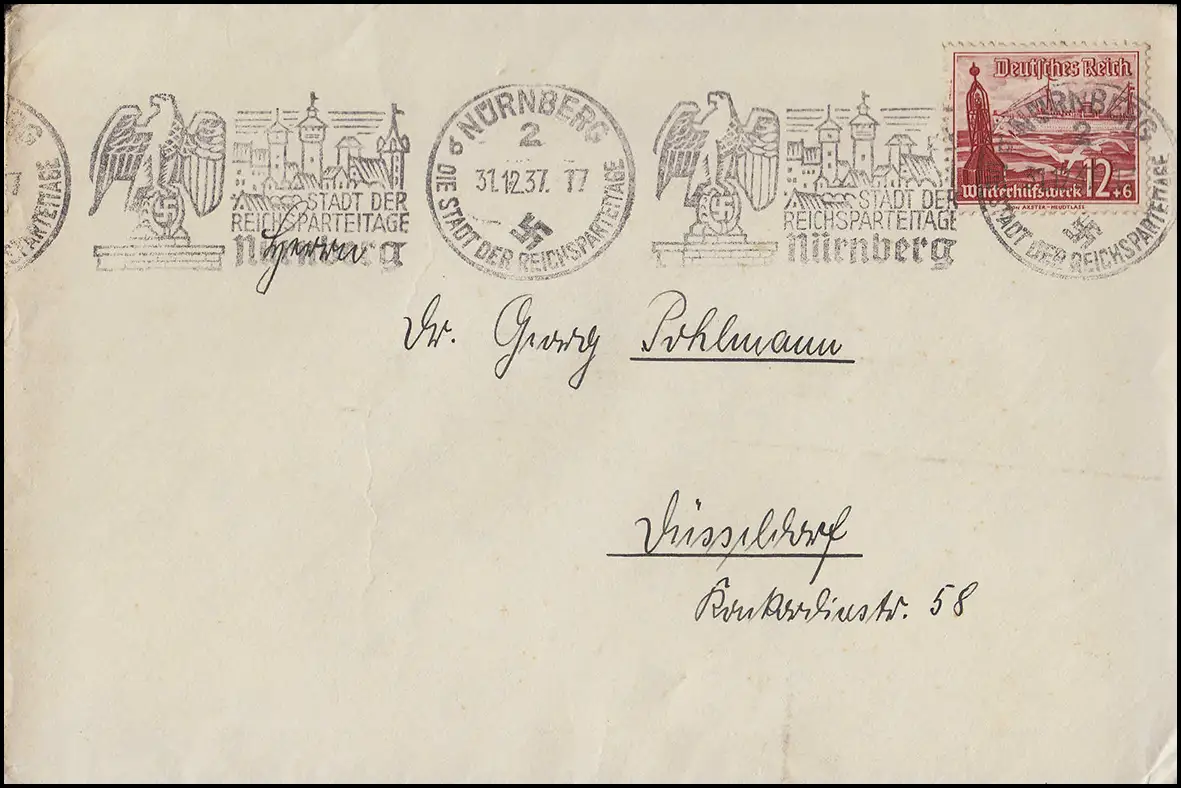 NÜRNBERG
2
31.12.37. 17
DIE STADT DER REICHSPARTEITAGE
STADT DER
REICHSPARTEITAGE
Nürnberg
STADT DER
REICHSPARTEITAGE
Nürnberg
Deutsches Reich
Winterhilfswerk 12+6
NÜRNBERG
2
STADT DER REICHSPARTEITAGE
Herrn
Dr. Georg Pohlmann
Düsseldorf
Konkordiastr. 58